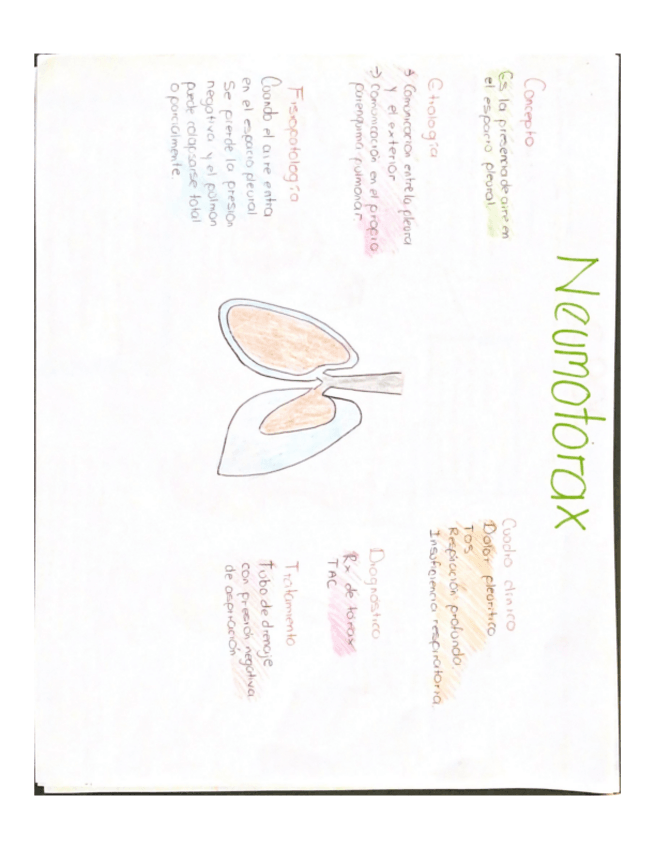 Neumotórax
Concepto
Es la presencia de aire en
el espacio pleural
Etiología
→ Comunicación entre la pleura
y el exterior
→ comunicación en el propio
parenquima pulmonar.
Fisiopatología
Cuando el aire entra
en el espacio pleural
se pierde la presión
negativa y el pulmón
puede colapsarse total
o parcialmente
Cuadro clínico
Dolor pleurítico
Tos
Respiración profunda
Insuficiencia respiratoria
Diagnostico
Rx de tórax
TAC
Tratamiento
Tubo de drenaje
con presión negativa
de aspiración